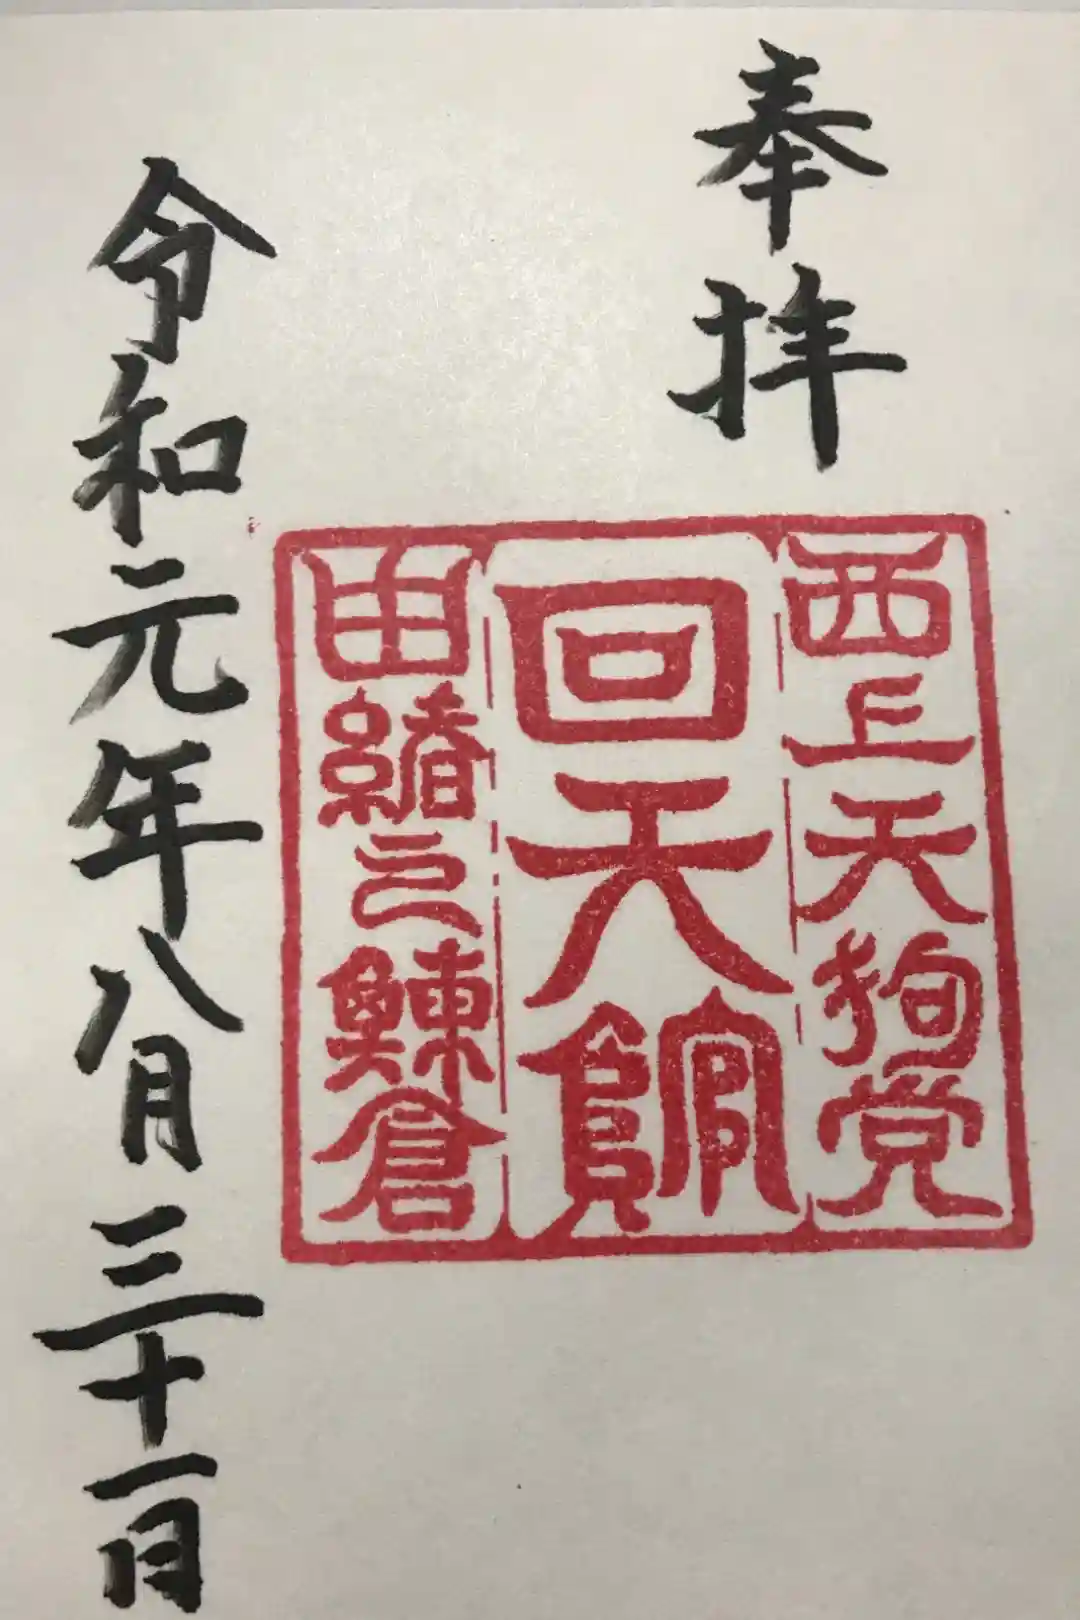 奉拝
西上天狗党
回天館
由緒之鰊倉
令和元年八月三十一日